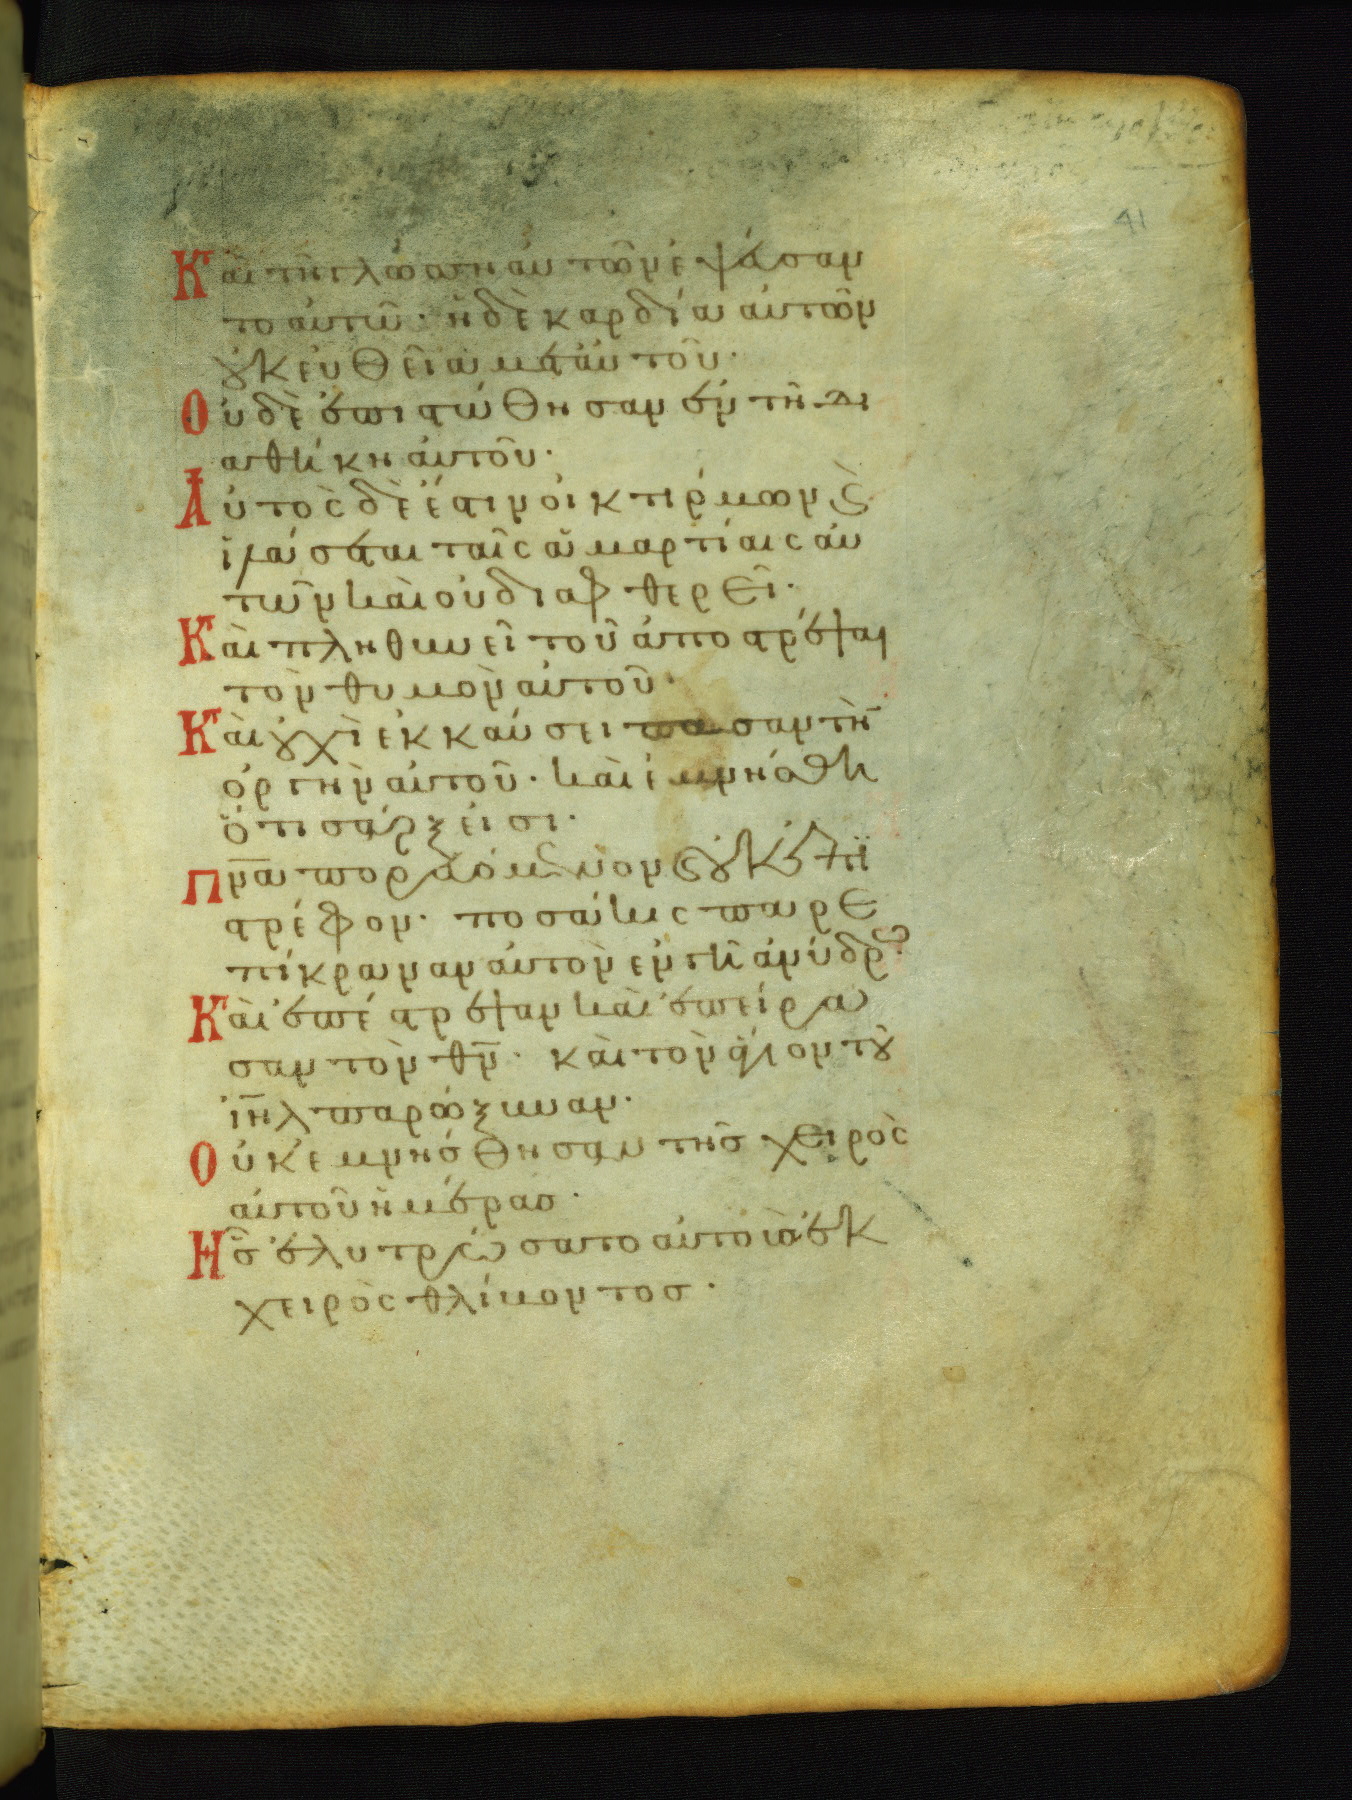 41
Καὶ τῆ γλώσση αὐτῶν ἐψεύσαν
το αὐτῶ· ἡ δὲ καρδία αὐτῶν
οὐκ εὐθεῖα μετ' αὐτοῦ·
Οὐδὲ ἐπιστώθησαν ἐν τῆ δι
αθήκη αὐτοῦ·
Αὐτὸς δέ ἐστιν οἰκτίρμων καὶ
ἱλάσεται ταῖς ἁμαρτίαις αὐ
τῶν καὶ οὐ διαφθερεῖ·
Καὶ πληθυνεῖ τοῦ ἀποστρέψαι
τὸν θυμὸν αὐτοῦ·
Καὶ οὐχὶ ἐκκαύσει πᾶσαν τὴν
ὀργὴν αὐτοῦ· καὶ ἐμνήσθη
ὅτι σάρξ εἰσι·
Πν̅α πορευόμενον καὶ οὐκ ἐπι
στρέφον· ποσάκις παρε
πίκραναν αὐτὸν ἐν τῆ ἀνύδρω·
Καὶ ἐπέστρεψαν καὶ ἐπείρα
σαν τὸν θν̅· καὶ τὸν ἅγιον τοῦ
ιη̅λ παρώξυναν·
Οὐκ ἐμνήσθησαν τῆς χειρὸς
αὐτοῦ ἡμέρας·
Ἧς ἐλυτρώσατο αὐτοὺς ἐκ
χειρὸς θλίβοντος·